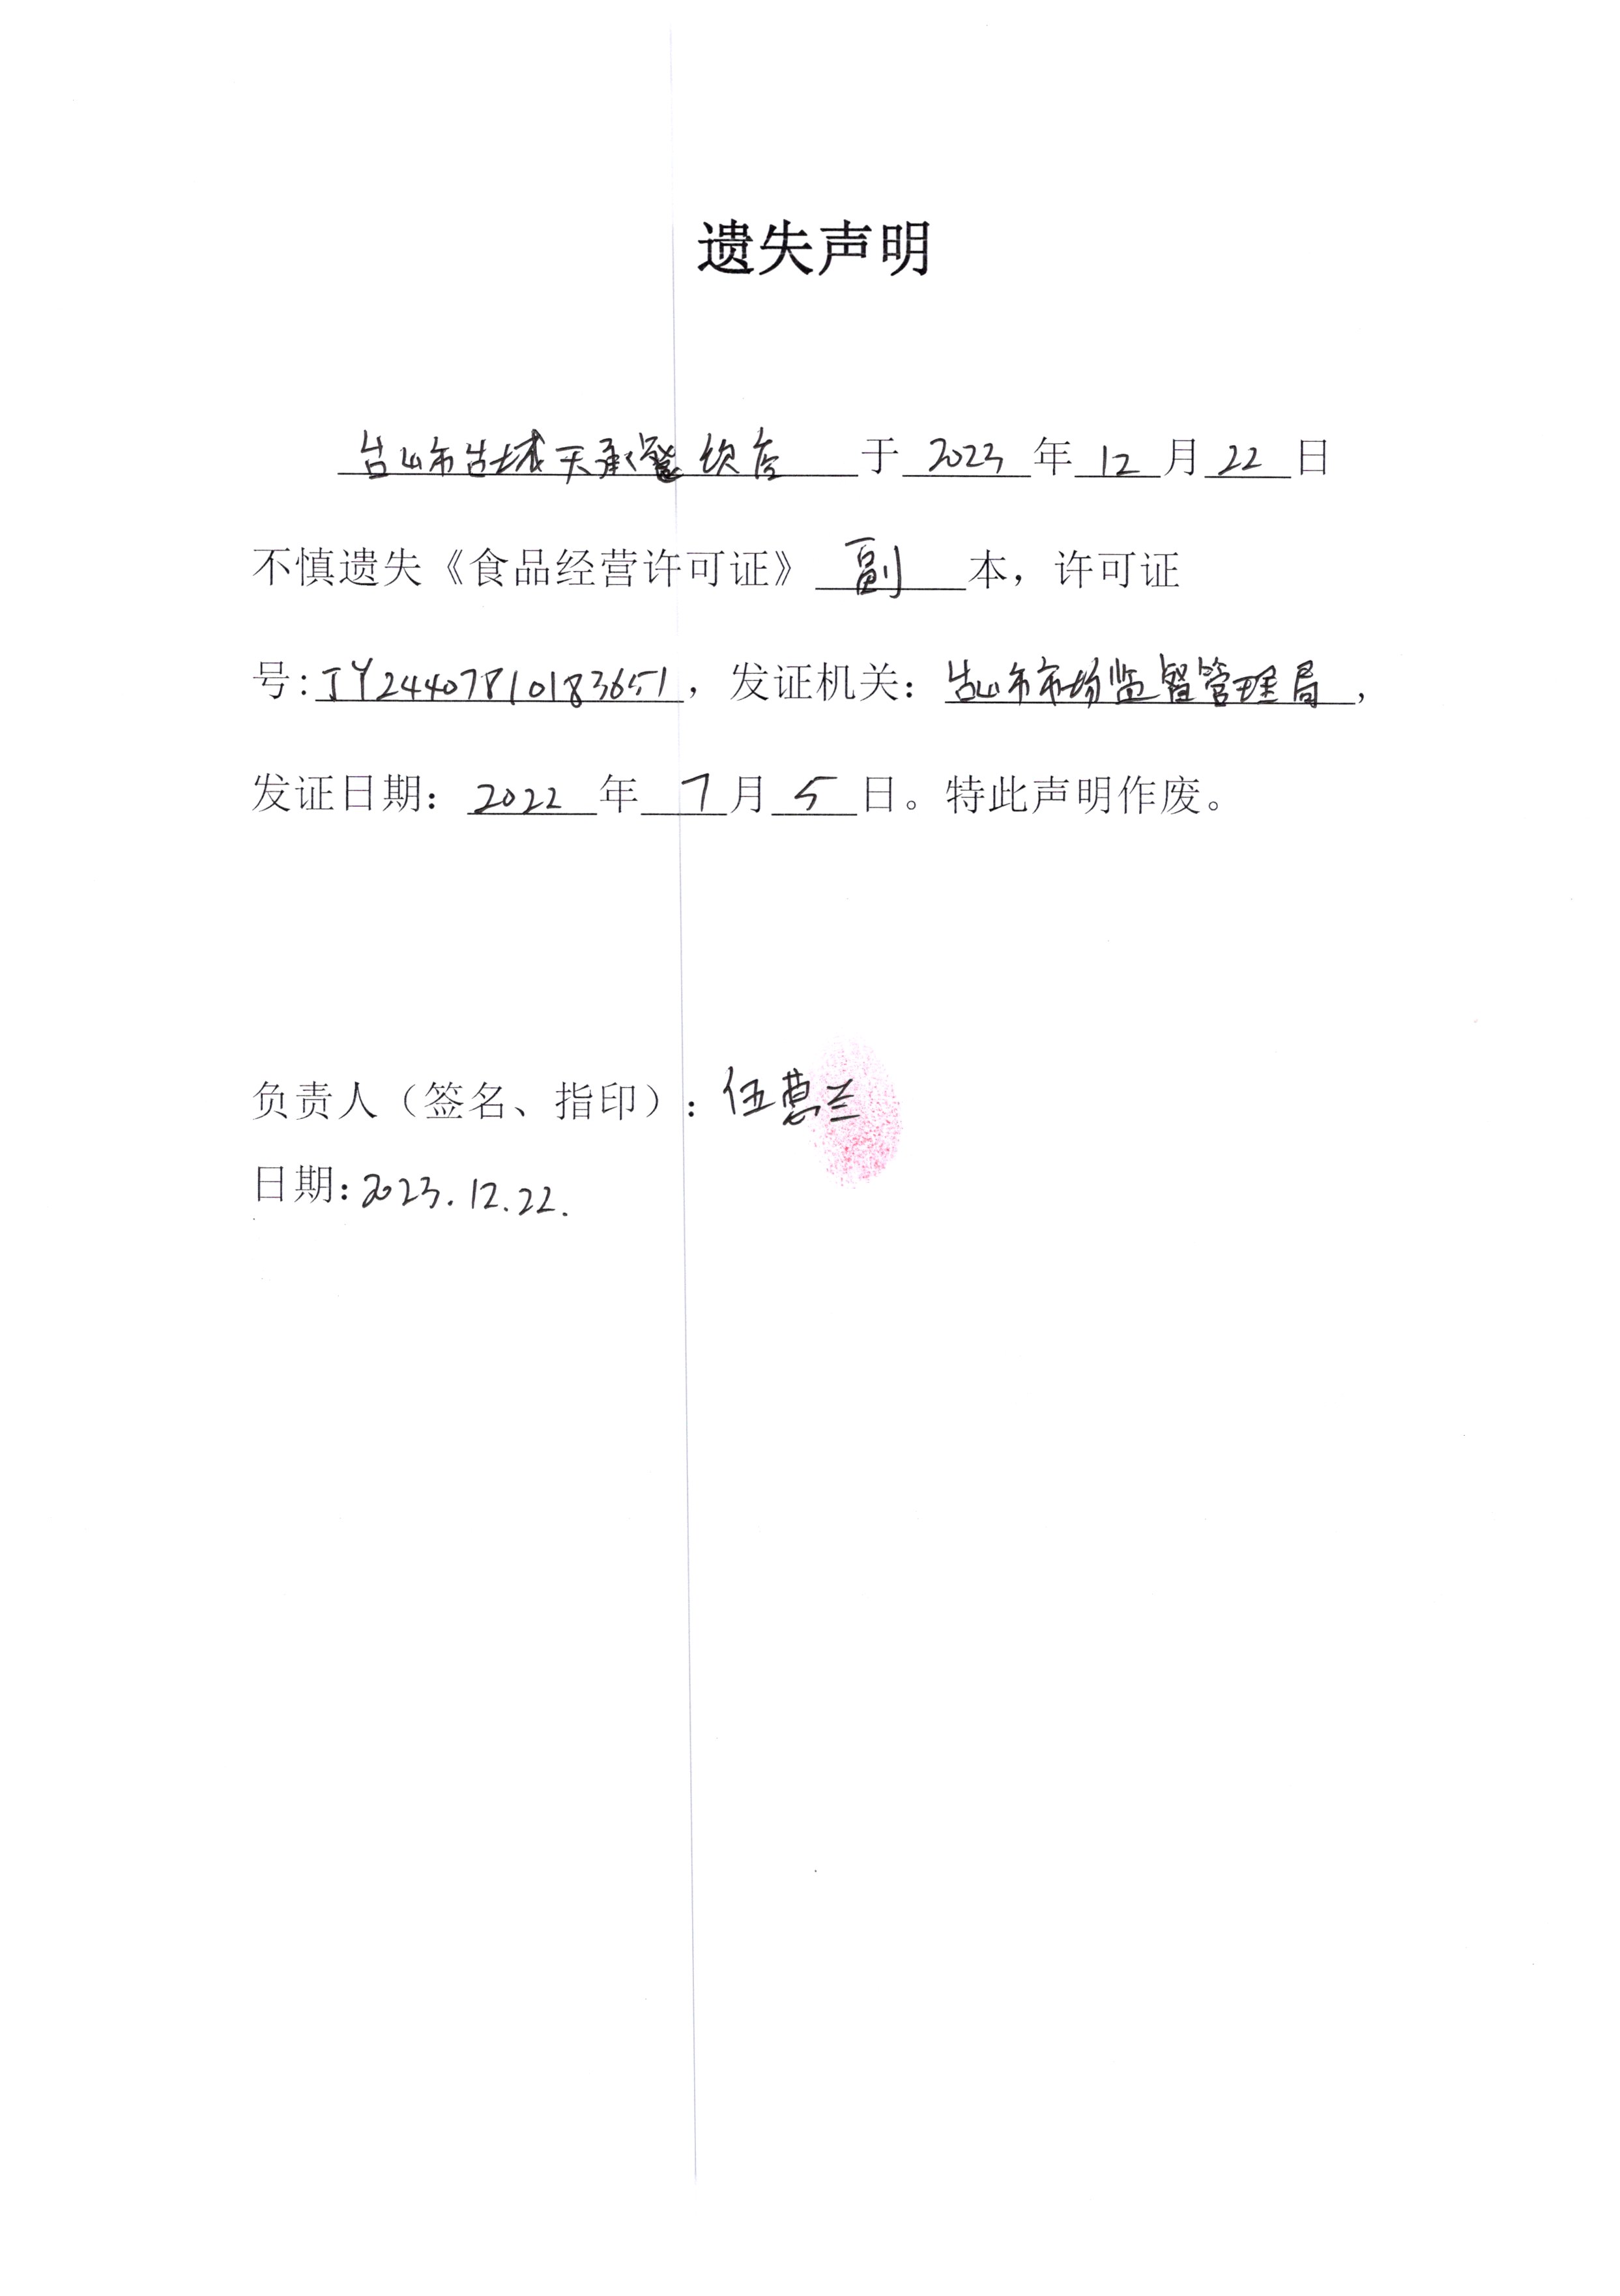 遗失声明
台山市台城天承餐饮店于2023年12月22日
不慎遗失《食品经营许可证》副本，许可证
号：JY24407810183651，发证机关：台山市市场监督管理局，
发证日期：2022年7月5日。特此声明作废。
负责人（签名、指印）：伍慧兰
日期：2023.12.22.